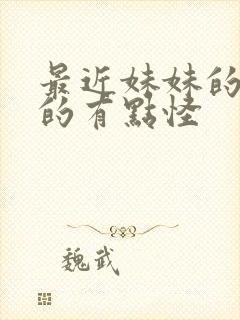 最近妹妹的
的有點怪
魏武